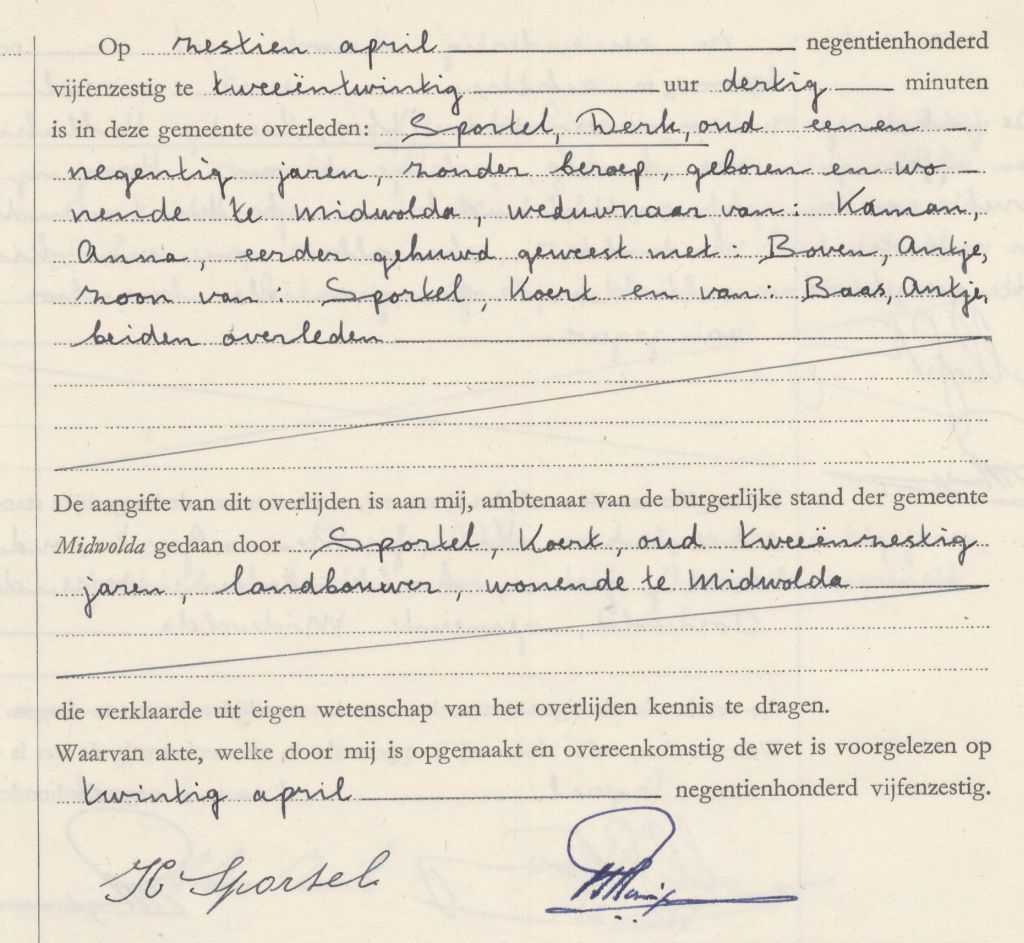 Op zestien april negentienhonderd
vijfenzestig te tweeëntwintig uur dertig minuten
is in deze gemeente overleden: Sportel, Derk, oud eenen-
negentig jaren, zonder beroep, geboren en wo-
nende te Midwolda, weduwnaar van: Kaman,
Anna, eerder gehuwd geweest met: Boven, Antje,
zoon van: Sportel, Koert en van: Baas, Antje,
beiden overleden
De aangifte van dit overlijden is aan mij, ambtenaar van de burgerlijke stand der gemeente
Midwolda gedaan door Sportel, Koert, oud tweeënzestig
jaren, landbouwer, wonende te Midwolda
die verklaarde uit eigen wetenschap van het overlijden kennis te dragen.
Waarvan akte, welke door mij is opgemaakt en overeenkomstig de wet is voorgelezen op
twintig april negentienhonderd vijfenzestig.
K Sportel